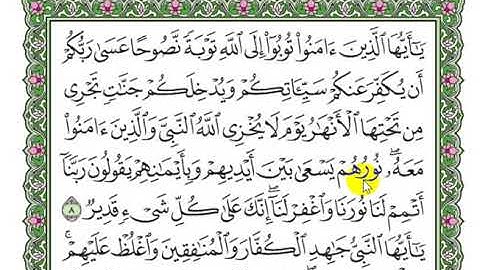 يَٰٓأَيُّهَا ٱلَّذِينَ ءَامَنُوا۟ تُوبُوٓا۟ إِلَى ٱللَّهِ تَوْبَةً نَّصُوحًا عَسَىٰ رَبُّكُمْ
أَن يُكَفِّرَ عَنكُمْ سَيِّـَٔاتِكُمْ وَيُدْخِلَكُمْ جَنَّٰتٍ تَجْرِى
مِن تَحْتِهَا ٱلْأَنْهَٰرُ يَوْمَ لَا يُخْزِى ٱللَّهُ ٱلنَّبِىَّ وَٱلَّذِينَ ءَامَنُوا۟
مَعَهُۥ ۖ نُورُهُمْ يَسْعَىٰ بَيْنَ أَيْدِيهِمْ وَبِأَيْمَٰنِهِمْ يَقُولُونَ رَبَّنَآ
أَتْمِمْ لَنَا نُورَنَا وَٱغْفِرْ لَنَآ ۖ إِنَّكَ عَلَىٰ كُلِّ شَىْءٍ قَدِيرٌ ٨
يَٰٓأَيُّهَا ٱلنَّبِىُّ جَٰهِدِ ٱلْكُفَّارَ وَٱلْمُنَٰفِقِينَ وَٱغْلُظْ عَلَيْهِمْ ۚ